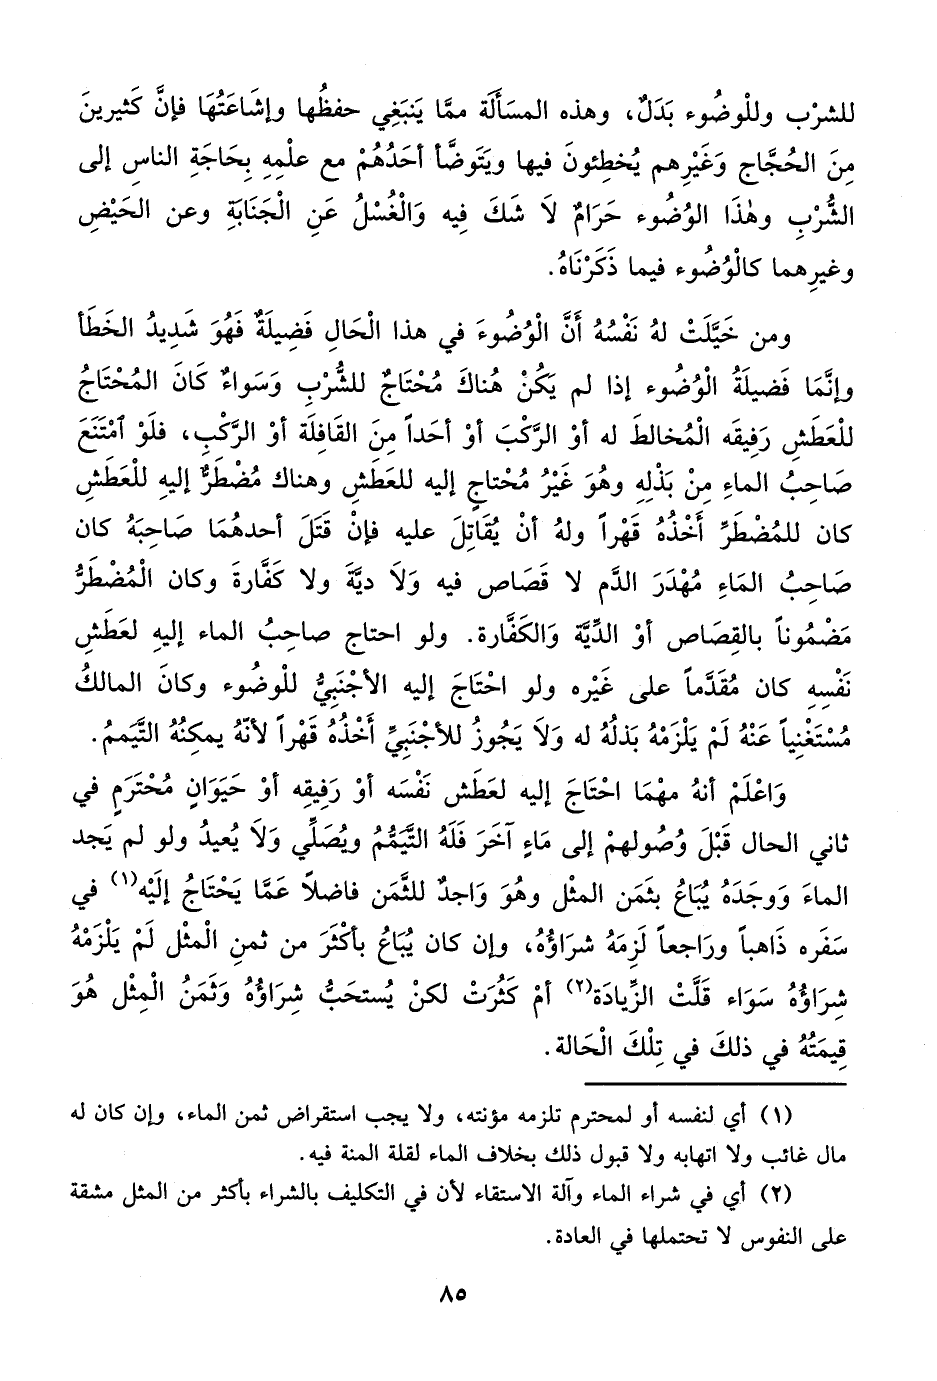 للشرْب وللْوضُوء بَدَلٌ، وهذه المسَأَلَة ممَّا يَنبَغِي حفظُها وإشَاعَتُهَا فإنَّ كَثيرينَ
مِنَ الحُجَّاج وَغَيْرِهم يُخطِئونَ فيها ويَتَوضَّأ أحَدُهُمْ مع علْمِهِ بِحَاجَةِ الناسِ إلى
الشُّرْبِ وهٰذَا الوُضُوء حَرَامٌ لاَ شَكَ فيه وَالْغُسْلُ عَنِ الْجَنَابَةِ وعن الحَيْضِ
وغيرِهما كالْوُضُوء فيما ذَكَرْنَاهُ.
ومن خَيَّلَتْ لهُ نَفْسُهُ أَنَّ الْوُضُوءَ في هذا الْحَالِ فَضِيلَةٌ فَهُوَ شَدِيدُ الخَطَأ
وإنَّمَا فَضيلَةُ الْوُضُوء إذا لم يَكُنْ هُناكَ مُحْتَاجٌ للشُّرْبِ وَسَواءٌ كَانَ المُحْتَاجُ
للْعَطَشِ رَفيقَه الْمُخالطَ له أوْ الرَّكْبَ أوْ أحَداً مِنَ القَافِلَة أوْ الرَّكْبِ، فلَوْ ٱمْتَنَعَ
صَاحِبُ الماءِ مِنْ بَذْلِهِ وهُوَ غَيْرُ مُحْتاجٍ إليه للعَطَشِ وهناك مُضْطَرٌّ إليهِ للْعَطَشِ
كان للمُضْطَرِّ أَخْذُهُ قَهْراً ولهُ أنْ يُقَاتِلَ عليه فإنْ قَتَلَ أحدهُمَا صَاحِبَهُ كان
صَاحِبُ المَاءِ مُهْدَرَ الدَّم لا قَصَاص فيه وَلاَ ديَّةَ ولا كَفَّارةَ وكان الْمُضْطَرُّ
مَضْمُوناً بالقِصَاص أوْ الدِّيَّة وَالكَفَّارة. ولو احتاج صاحِبُ الماء إليهِ لعَطَشِ
نَفْسِهِ كان مُقَدَّماً على غَيْره ولو احْتَاجَ إليه الأجْنَبيُّ للْوضُوء وكانَ المالكُ
مُسْتَغْنِياً عَنْهُ لَمْ يَلْزَمْهُ بَذلُهُ له وَلاَ يَجُوزُ للأجْنَبِيِّ أخْذُهُ قَهْراً لأنّهُ يمكنُهُ التَّيَممُ.
وَاعْلَمْ أنهُ مهْمَا احْتَاجَ إليه لعَطَش نَفْسَه أوْ رَفِيقِه أو حَيَوَانٍ مُحْتَرَمٍ في
ثاني الحال قَبْلَ وُصُولهمْ إلى مَاءٍ آخَرَ فَلَهُ التَّيَمُّمُ ويُصَلِّي وَلاَ يُعيدُ ولو لم يَجد
الماءَ وَوجَدَهُ يُبَاعُ بثَمَن المثْل وهُوَ وَاجدٌ للثَّمَن فاضلاً عَمَّا يَحْتَاجُ إلَيْه(١) في
سَفَره ذَاهباً ورَاجعاً لَزِمَهُ شرَاؤُهُ، وإن كان يُبَاعُ بأكْثَرَ من ثمنِ الْمثْل لَمْ يَلْزَمْهُ
شِرَاؤُهُ سَوَاء قَلَّتْ الزِّيادَة(٢) أمْ كَثُرَتْ لكنْ يُستحَبُّ شِرَاؤُهُ وَثَمَنُ الْمِثْل هُوَ
قِيمَتُهُ في ذلكَ في تِلْكَ الْحَالة.
(١) أي لنفسه أو لمحترم تلزمه مؤنته، ولا يجب استقراض ثمن الماء، وإن كان له
مال غائب ولا اتهابه ولا قبول ذلك بخلاف الماء لقلة المنة فيه.
(٢) أي في شراء الماء وآلة الاستقاء لأن في التكليف بالشراء بأكثر من المثل مشقة
على النفوس لا تحتملها في العادة.
٨٥